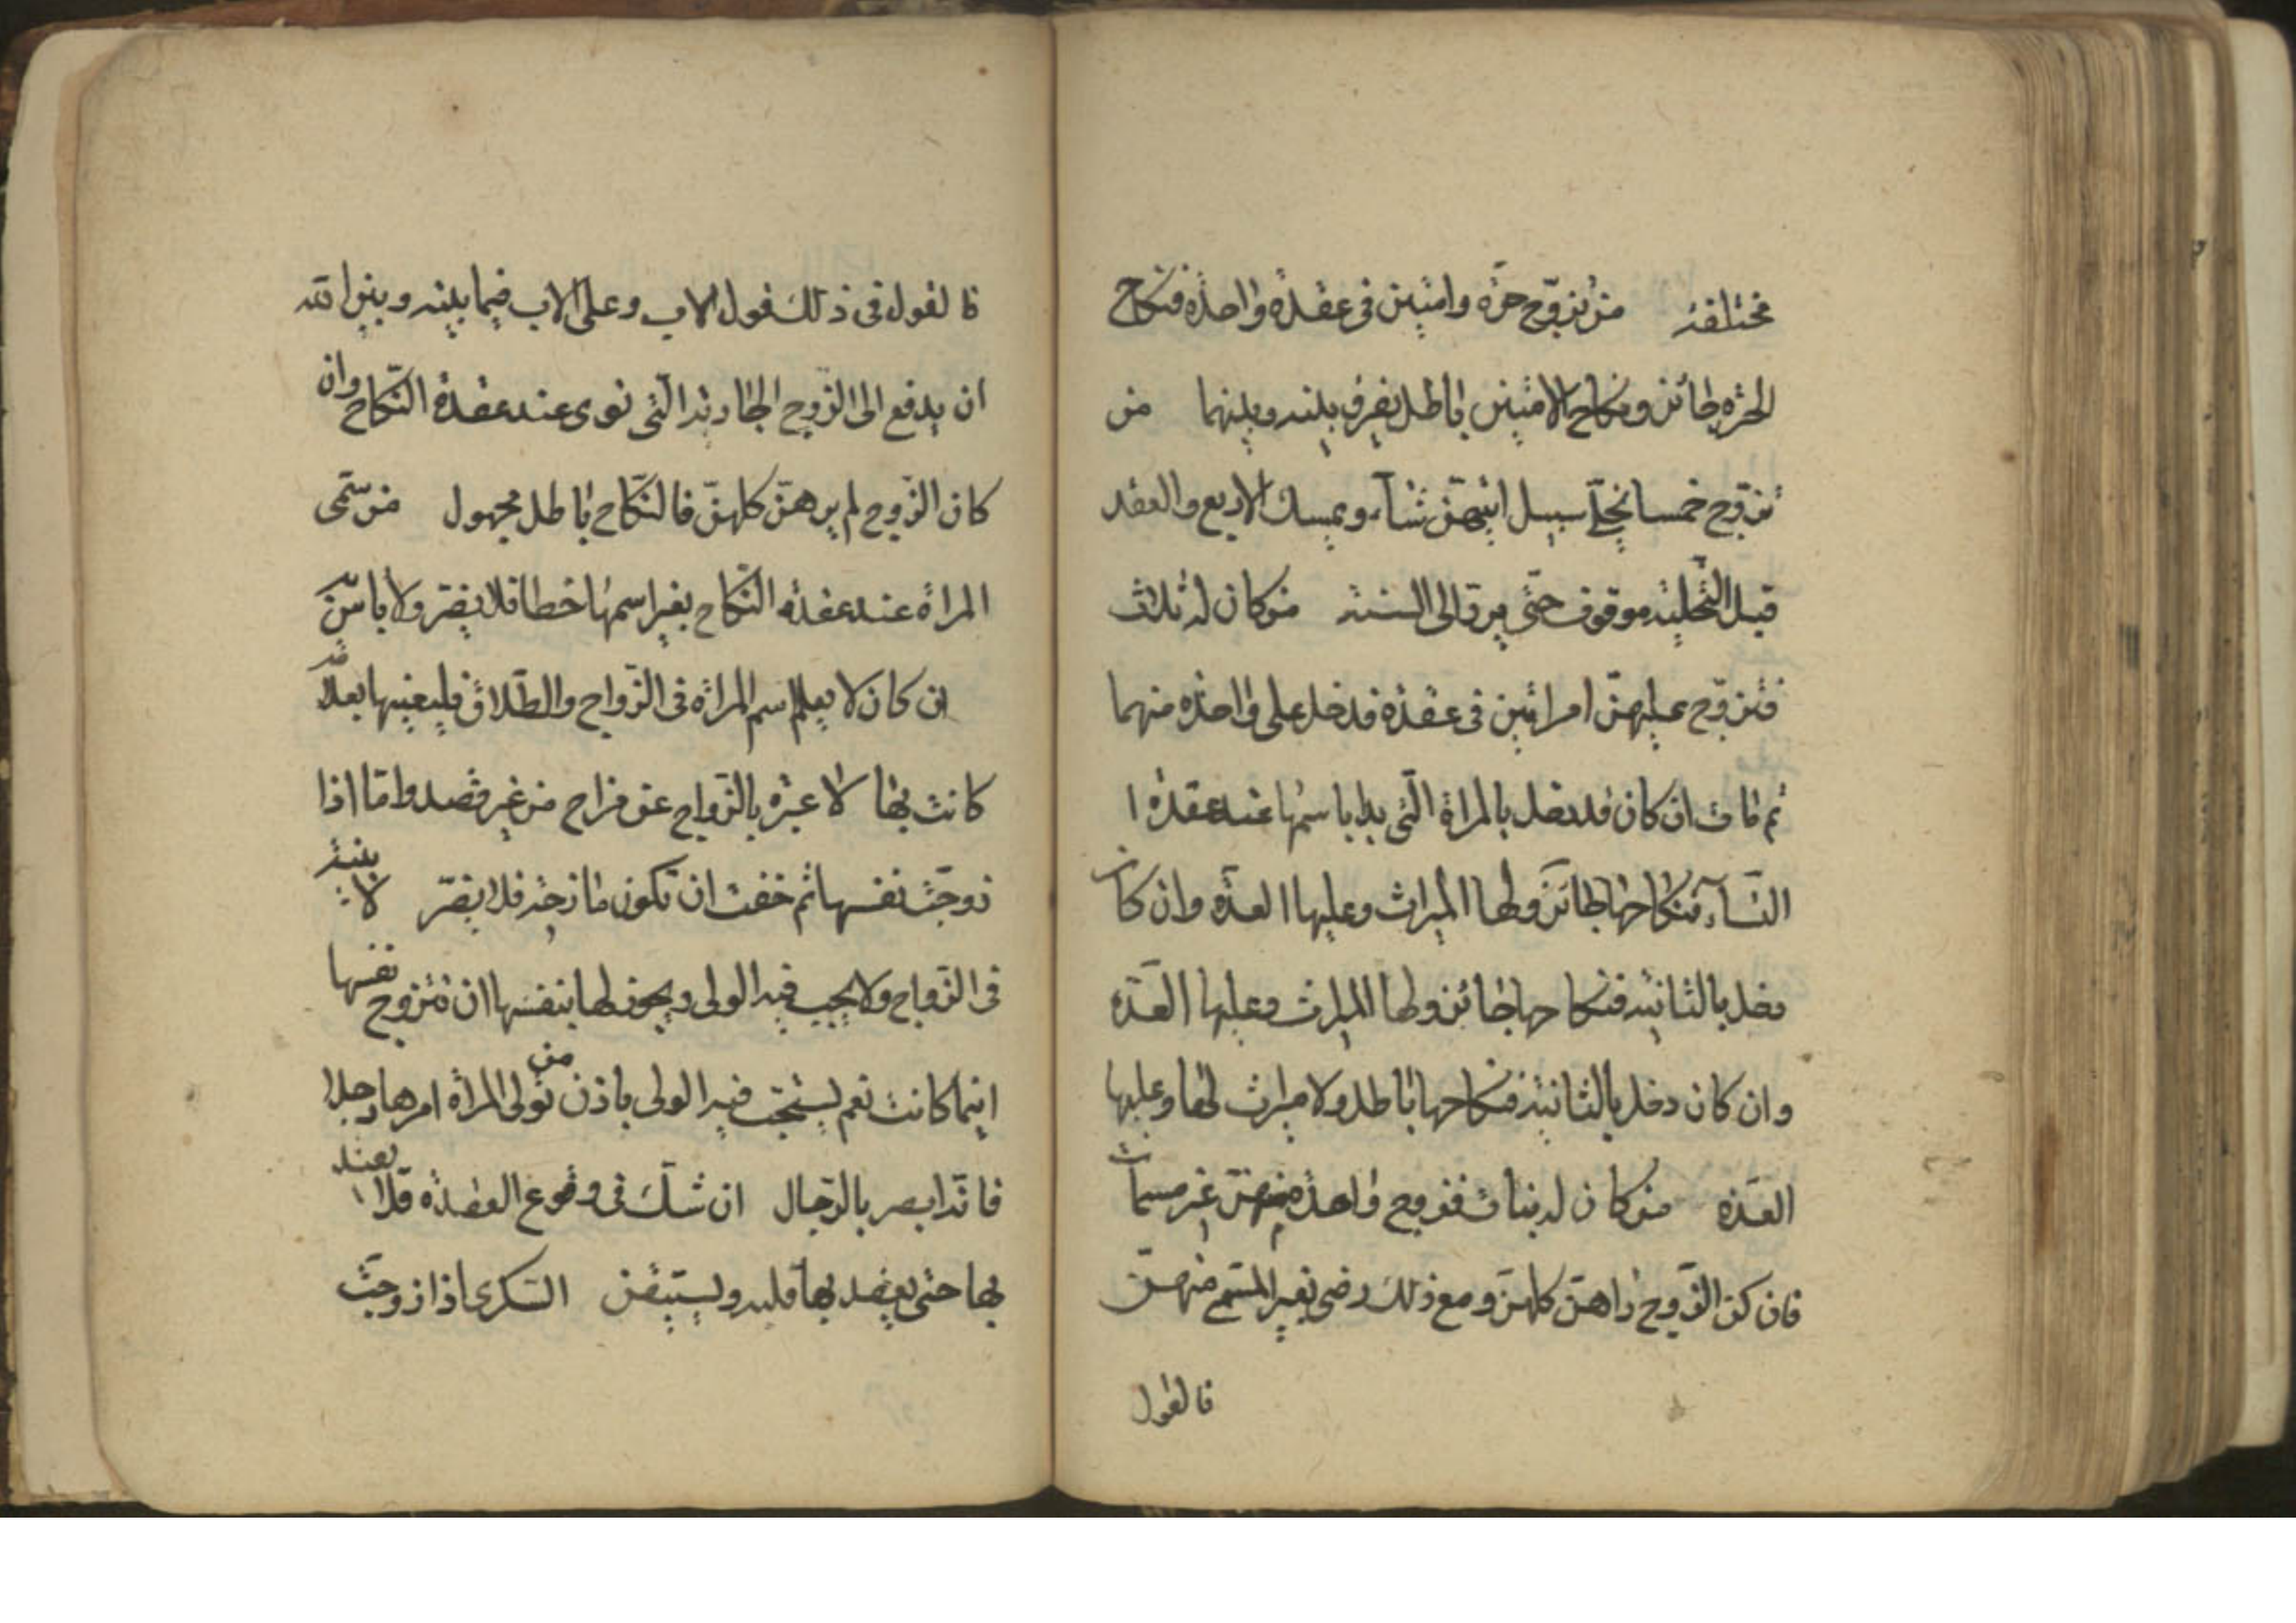 مختلفة من تزوّج حرّة وامتين في عقدة واحدة فنكاح
الحرة جائز ونكاح الامتين باطل يفرق بينه وبينهما من
تزوّج خمسا يخلّي سبيل ايتهنّ شآء ويمسك الاربع والعقد
قبل التخلية موقوف حتّى يردّ الى السنة من كان له ثلاث
فتزوّج عليهنّ امراتين في عقدة فدخل على واحدة منهما
ثم مات ان كان قد دخل بالمراة الّتي بدا باسمها عند عقدة ا
النسآء فنكاحها جائز ولها الميراث وعليها العدّة وان كان
دخل بالثانية فنكاحها جائز ولها الميراث وعليها العدّة
وان كان دخل بالثانية فنكاحها باطل ولا ميراث لها وعليها
العدّة من كان له بنات فزوج واحدة منهنّ غير مسمات
فان كان الزّوج راهنّ كلهنّ ومع ذلك رضى بغير المسمّى منهنّ
فالقول
فالقول في ذلك قول الاب وعلى الاب فيما بينه وبين الله
ان يدفع الى الزّوج الجارية الّتي نوى عند عقدة النّكاح وان
كان الزّوج لم يرهنّ كلهنّ فالنّكاح باطل مجهول من سمّى
المراة عند عقدة النّكاح بغير اسمها خطا فلا يضرّ ولا باس
ان كان لا يعلم اسم المراة في الزّواج والطّلاق فليعنيها بعلامة
كانت بها لا عبرة بالزّواج عن مزاح من غير قصد وامّا اذا
زوجّت نفسها ثم خفت ان تكون مازحة فلا يضرّ لا بيّنة
في الزّواج ولا يجب فيه الولى ويجوز لها بنفسها ان تتزوج نفسها
ايّما كانت نعم يستحبّ فيه الولى باذن من تولى المراة امرها رجلا
فانّه ابصر بالرّجال ان شكّ في وقوع العقدة فلا يعتد
بها حتى يعقد بها قلبه ويستيقن السّكرى اذا زوجّت